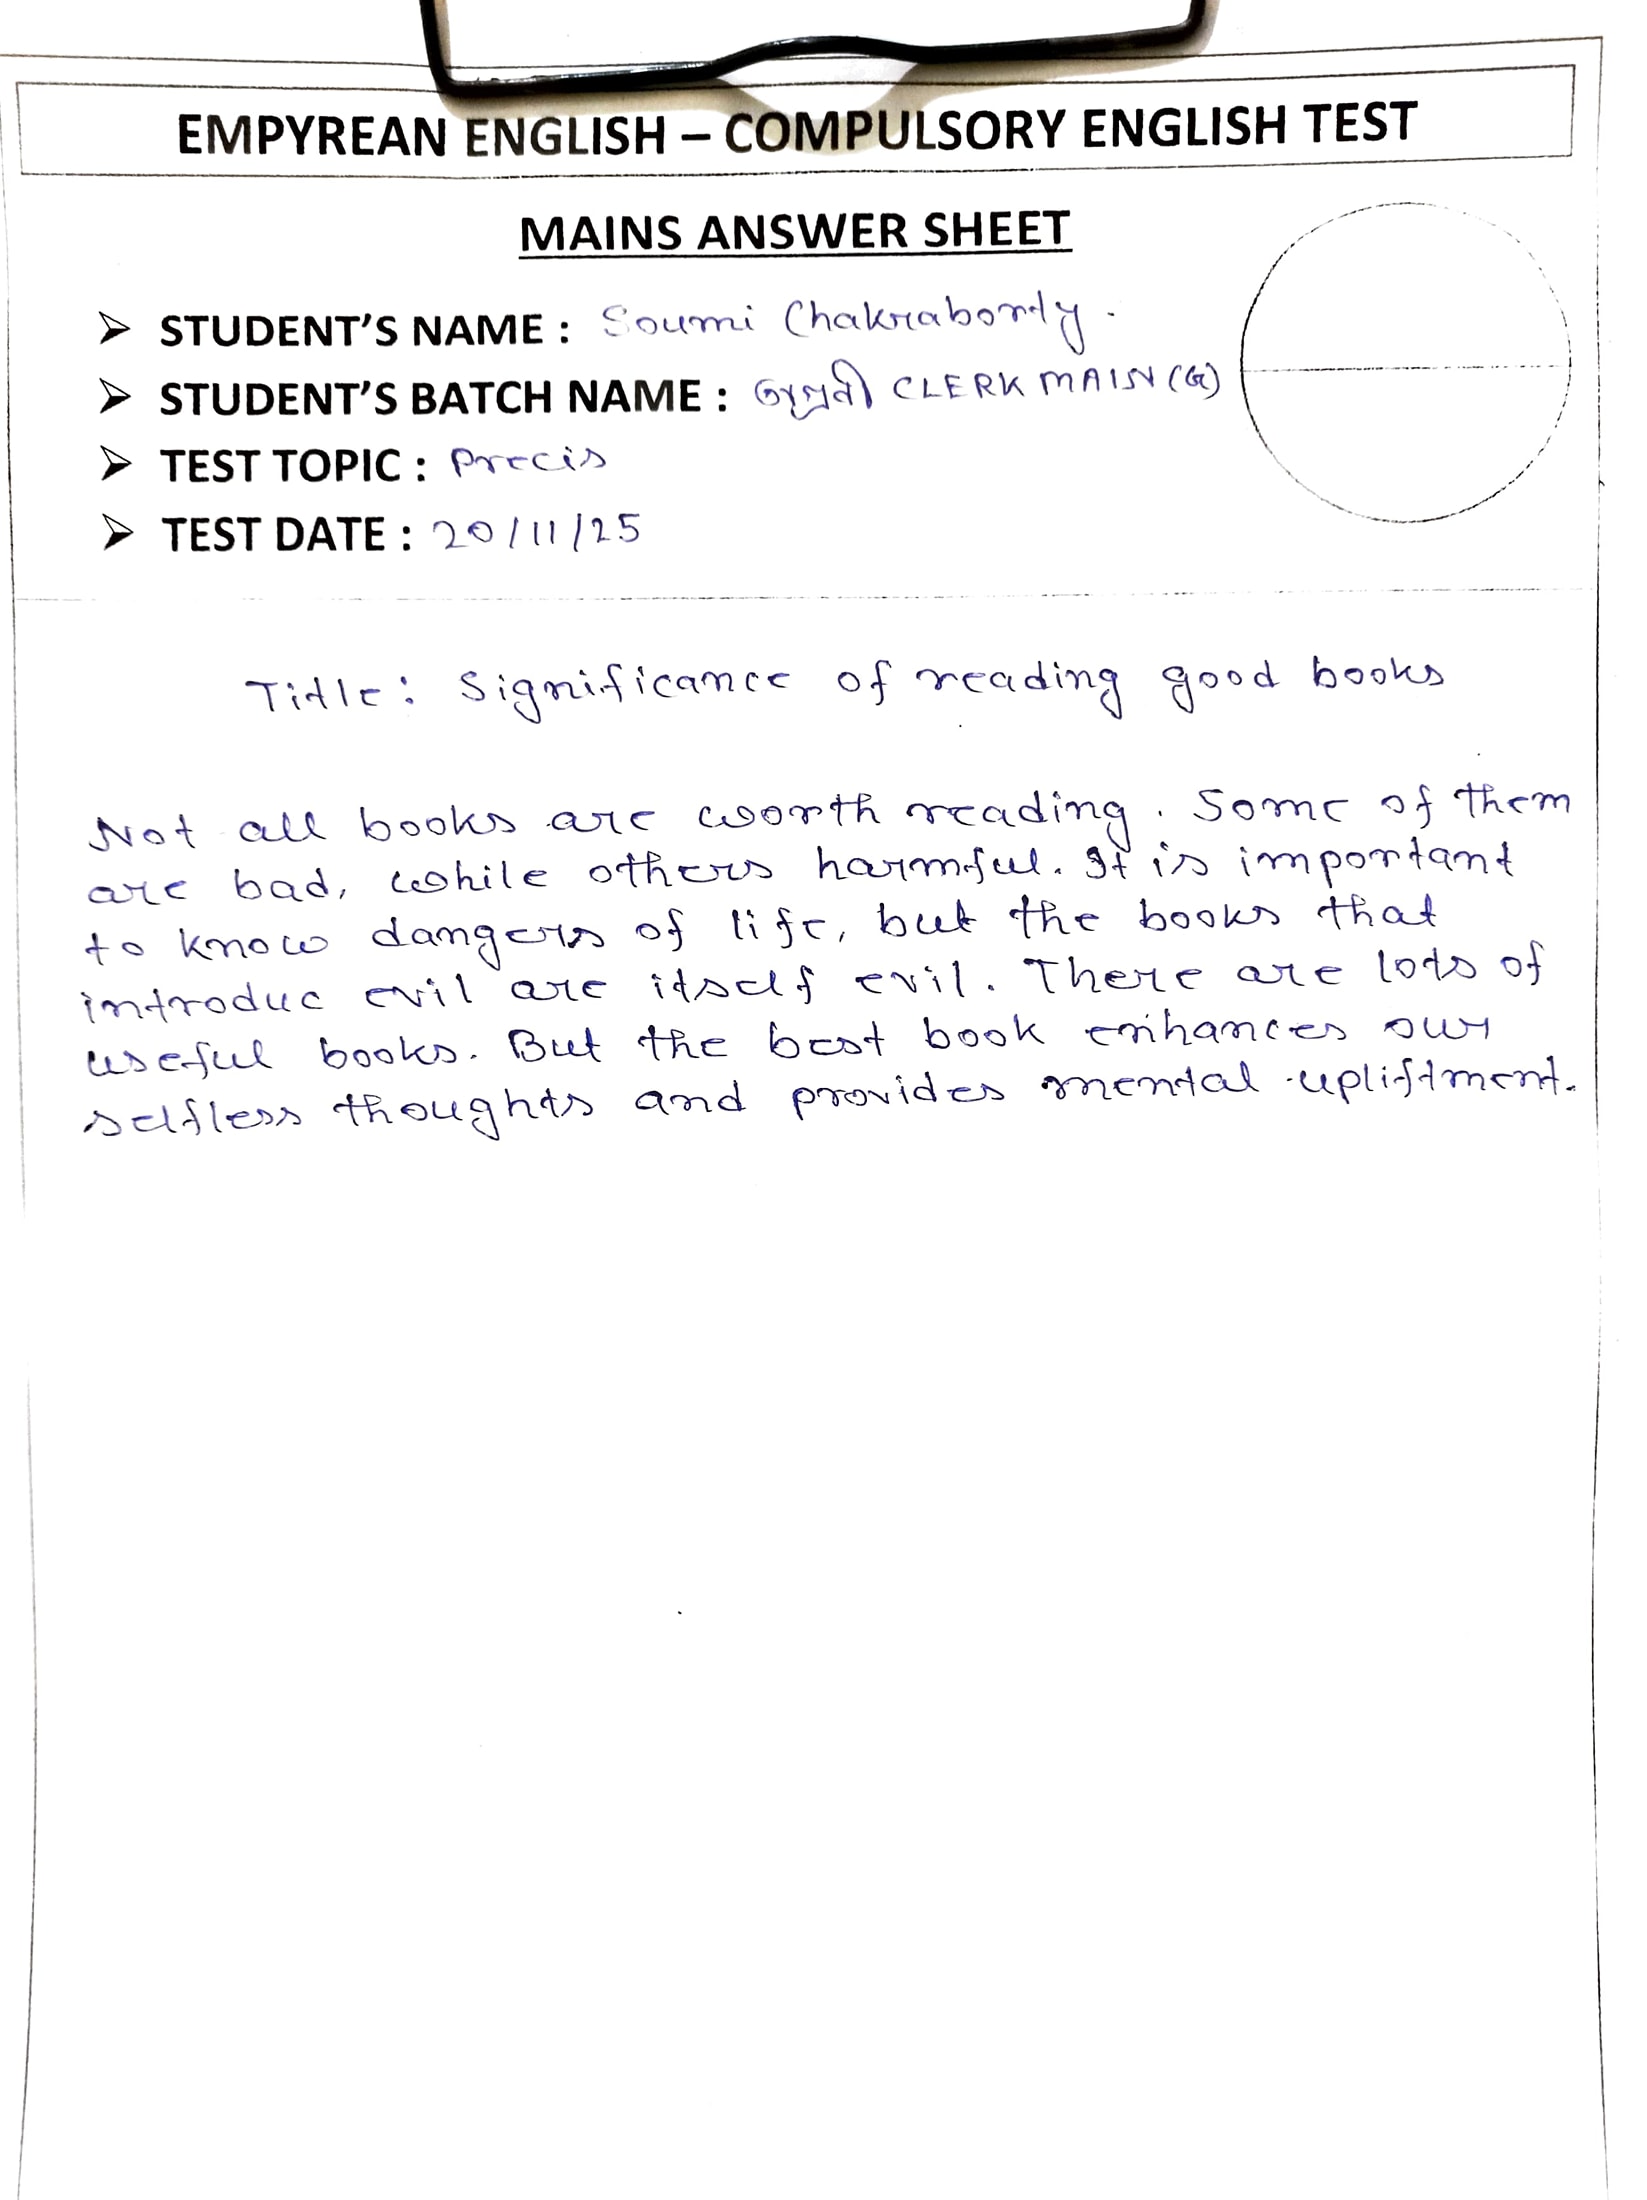 EMPYREAN ENGLISH – COMPULSORY ENGLISH TEST
MAINS ANSWER SHEET
➢ STUDENT'S NAME : Soumi Chakraborty.
➢ STUDENT'S BATCH NAME : CLERK MAIN (G)
➢ TEST TOPIC : Precis
➢ TEST DATE : 20/11/25
Title: Significance of reading good books
Not all books are worth reading. Some of them
are bad, while others harmful. It is important
to know dangers of life, but the books that
introduc evil are itself evil. There are lots of
useful books. But the best book enhances our
selfless thoughts and provides mental upliftment.